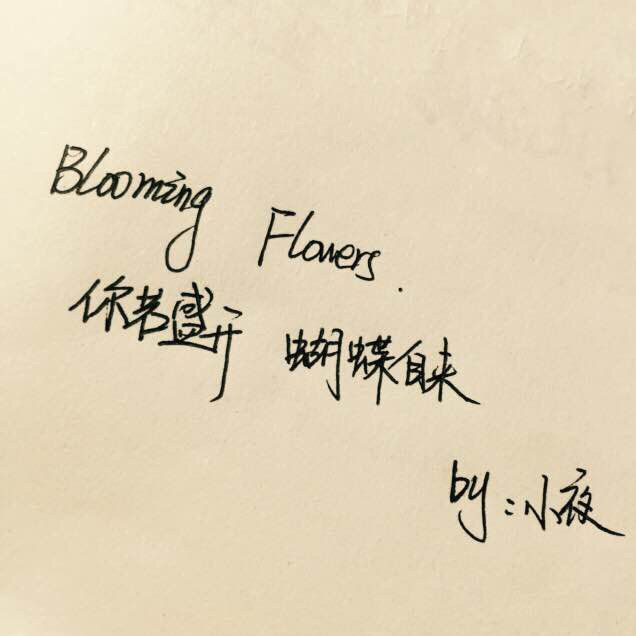 Blooming Flowers.
你若盛开 蝴蝶自来
by:小夜